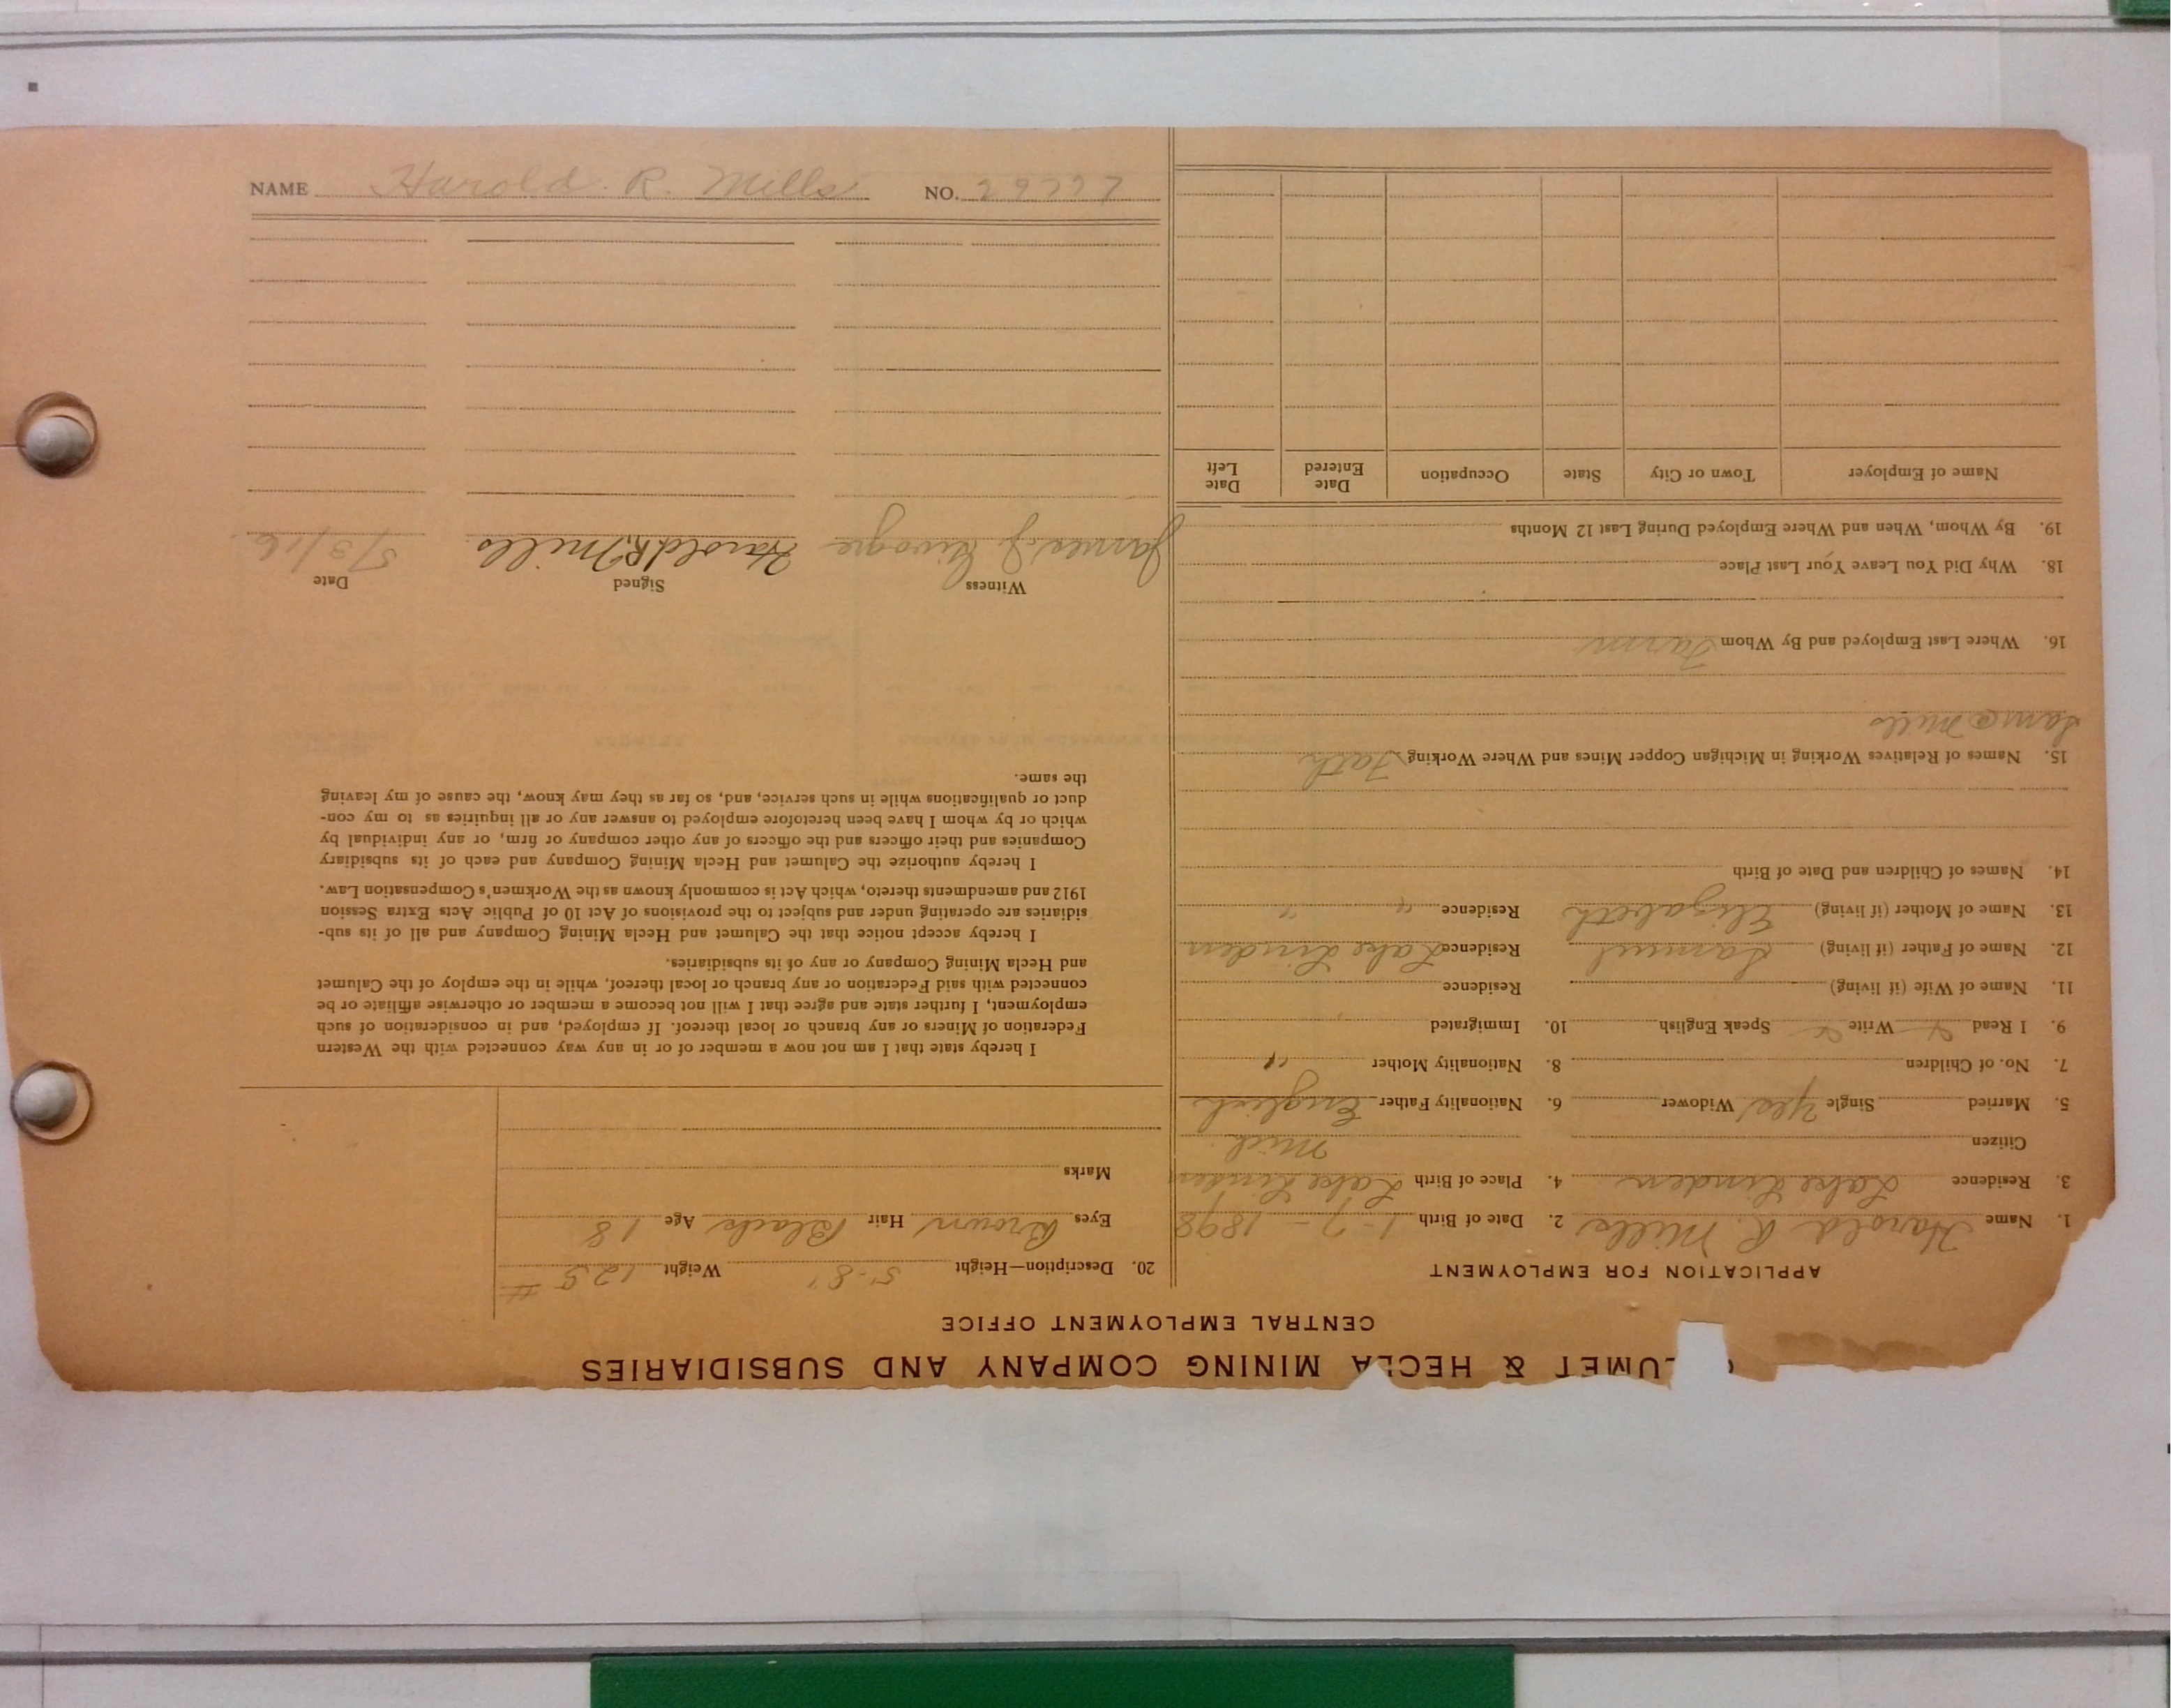 NAME Harold. R. Mills NO. 29777
LUMET & HECLA MINING COMPANY AND SUBSIDIARIES
CENTRAL EMPLOYMENT OFFICE
APPLICATION FOR EMPLOYMENT
1. Name Harold R. Mills 2. Date of Birth 1-7-1898
3. Residence Lake Linden 4. Place of Birth Lake Linden
Citizen Mich.
5. Married Single Yes Widower 6. Nationality Father English
7. No. of Children 8. Nationality Mother "
9. I Read Write Speak English 10. Immigrated
11. Name of Wife (if living) Residence
12. Name of Father (if living) Samuel Residence Lake Linden
13. Name of Mother (if living) Elizabeth Residence " "
14. Names of Children and Date of Birth
15. Names of Relatives Working in Michigan Copper Mines and Where Working Fath
Mills
16. Where Last Employed and By Whom Farm
18. Why Did You Leave Your Last Place
19. By Whom, When and Where Employed During Last 12 Months
Name of Employer Town or City State Occupation Date Entered Date Left
20. Description—Height 5'-8" Weight 125 #
Eyes Brown Hair Black Age 18
Marks
I hereby state that I am not now a member of or in any way connected with the Western
Federation of Miners or any branch or local thereof. If employed, and in consideration of such
employment, I further state and agree that I will not become a member or otherwise affiliate or be
connected with said Federation or any branch or local thereof, while in the employ of the Calumet
and Hecla Mining Company or any of its subsidiaries.
I hereby accept notice that the Calumet and Hecla Mining Company and all of its sub-
sidiaries are operating under and subject to the provisions of Act 10 of Public Acts Extra Session
1912 and amendments thereto, which Act is commonly known as the Workmen's Compensation Law.
I hereby authorize the Calumet and Hecla Mining Company and each of its subsidiary
Companies and their officers and the officers of any other company or firm, or any individual by
which or by whom I have been heretofore employed to answer any or all inquiries as to my con-
duct or qualifications while in such service, and, so far as they may know, the cause of my leaving
the same.
Witness Signed Date
James J. Harold R. Mills. 5/3/16.